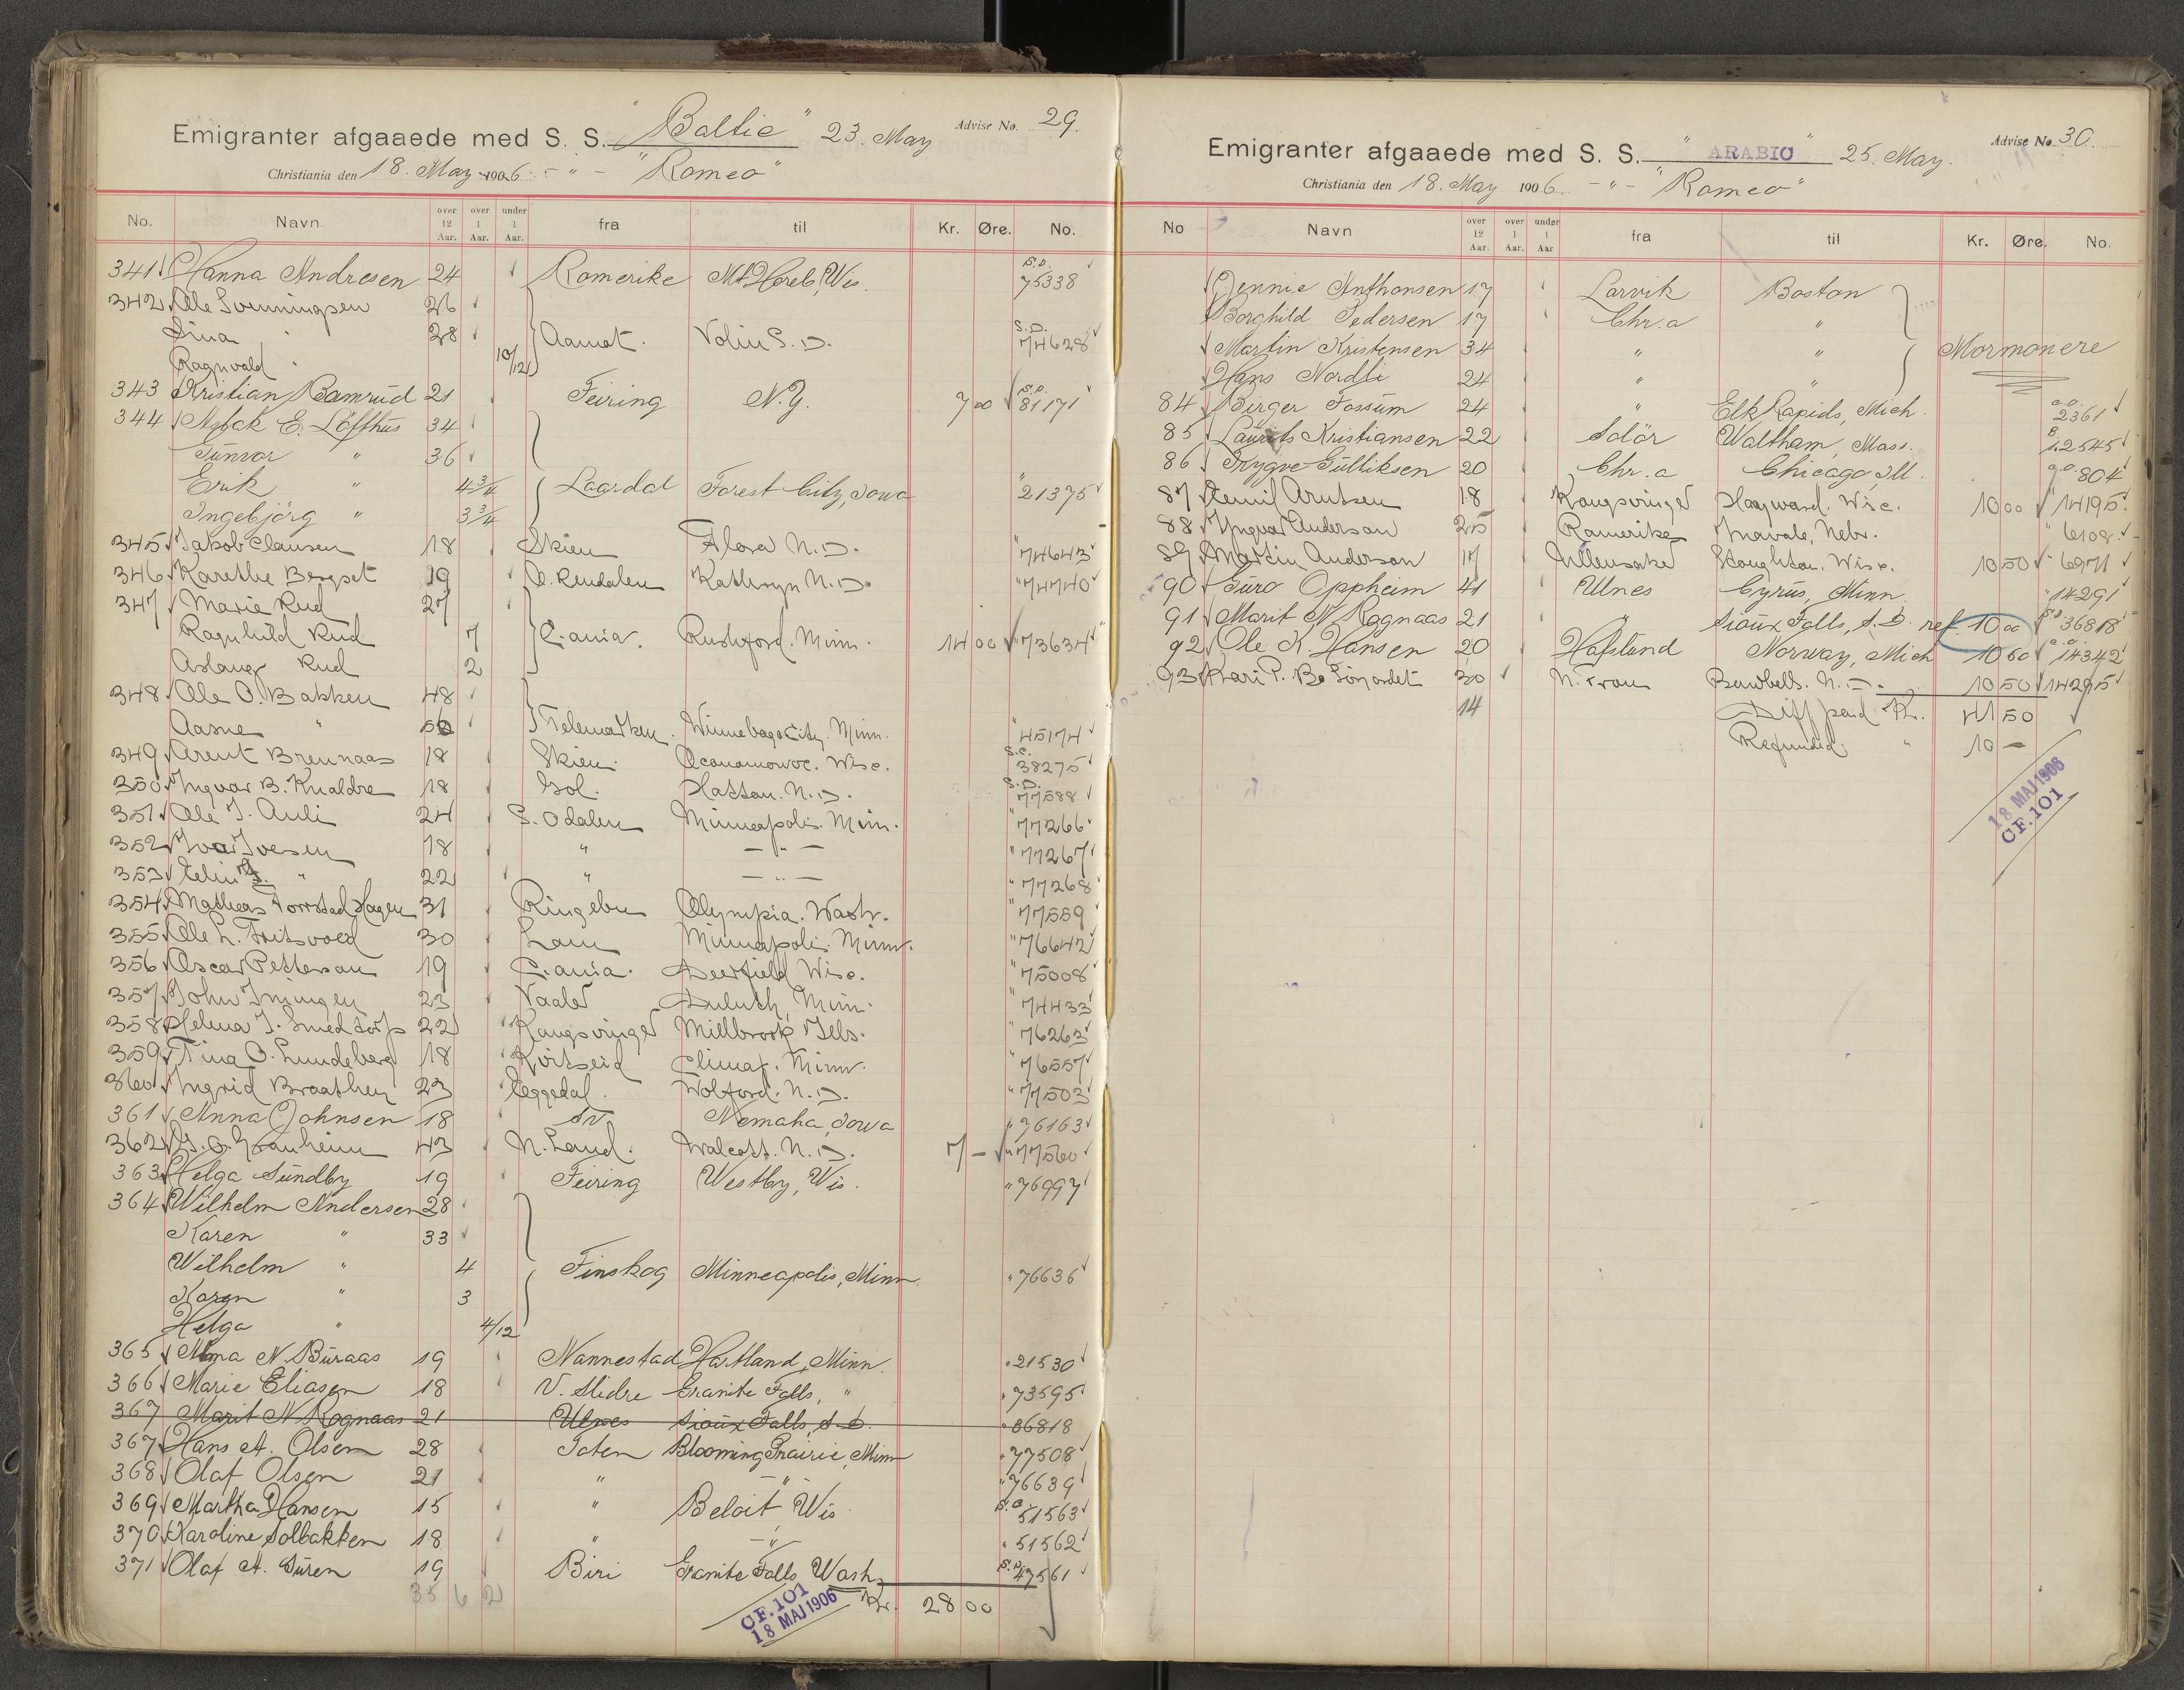 Emigranter afgaaede med S. S. "Baltic" 23. May Advise No. 29.
Christiania den 18. May 1906. - " - "Romeo"
No. Navn over 12 Aar. over 1 Aar. under 1 Aar. fra til Kr. Øre. No.
341 Hanna Andresen 24 Romerike Mt Horeb, Wis. S.D. 75338
342 Ole Svenningsen 26
Sina " 28 Aamot. Volin S.D. S.D. 74628
Ragnvald " 10/12
343 Kristian Ramrud 21 Feiring N.Y. 7 00 S.D. 81171
344 Aslak E. Löfthus 34
Gunvor " 36
Erik " 4 3/4 Laardal Forest City, Iowa " 21375
Ingebjörg " 3 3/4
345 Jakob Clausen 18 Skien Flora N.D. " 74643
346 Karethe Bergset 19 Ø. Rendalen Kathryn N.D. " 74740
347 Marie Rud 27
Ragnhild Rud 7 C.ania. Rushford. Minn. 14 00 " 73634
Aslaug Rud 2
348 Ole O. Bakken 48
Aasne " 56 Telemarken. Winnebago City. Minn. " 45174
349 Arent Brennaas 18 Skien. Oconomowoc. Wisc. S.C. 38275
350 Ingvar B. Knaldre 18 Gol. Hatton. N.D. S.D. 77588
351 Ole J. Auli 24 S. Odalen Minneapolis. Minn. " 77266
352 Ivar Ivesen 18 " — " — " 77267
353 Elin " 22 " — " — " 77268
354 Mathias Torrstad Hagen 31 Ringebu Olympia. Wash. " 77559
355 Ole L. Fritsvold 30 Lom Minneapolis. Minn. " 76642
356 Oscar Petterson 19 C.ania. Deerfield Wisc. " 75008
357 John 23 Vaaler Duluth, Minn. " 74433
358 Helma J. Smedstorp 22 Kongsvinger Millbrook Ills. " 76263
359 Tina O. Lundeberg 18 Kvitseid Climax. Minn. " 76557
360 Ingrid Braathen 23 Eggedal. Wolford. N.D. " 77503
361 Anna Johnsen 18 Nemaha, Iowa " 76163
362 G. O. Granheim 43 N. Land. Walcott. N.D. 7 — " 77560
363 Helga Sundby 19 Feiring Westby, Wis. " 76997
364 Wilhelm Andersen 28
Karen " 33
Wilhelm " 4 Finskog Minneapolis, Minn. " 76636
Karen " 3
Helga " 4/12
365 N. Buraas 19 Nannestad Hartland, Minn. " 21530
366 Marie Eliasen 18 V. Slidre Granite Falls, " " 73595
367 Marit N Rognaas 21 Ulnes Sioux Falls, S.D. " 36818
367 Hans A. Olsen 28 Toten Blooming Prairie, Minn " 77508
368 Olaf Olsen 21 " — " — " 76639
369 Martha Hansen 15 " Beloit, Wis. S.C. 51563
370 Karoline Solbakken 18 " — " — " 51562
371 Olaf A. Suren 19 Biri Granite Falls Wash. S.D. 47561
35 6 2 Kr. 28 00
CF. 101
18 MAJ 1906
Emigranter afgaaede med S. S. "ARABIC" 25. May. Advise No. 30.
Christiania den 18. May 1906 - " - "Romeo"
No Navn over 12 Aar. over 1 Aar. under 1 Aar fra til Kr. Øre. No.
Jennie Anthonsen 17 Larvik Boston
Borghild Pedersen 17 Chr.a "
Martin Kristensen 34 " " Mormonere
Hans Nordli 24 " "
84 Birger Fossum 24 " Elk Rapids, Mich. C.O. 2361
85 Laurits Kristiansen 22 Solör Waltham, Mass. B. 12545
86 Trygve Gulliksen 20 Chr.a Chicago, Ill. g.o. 804
87 Emil Arntsen 18 Kongsvinger Hayward. Wisc. 10 00 " 14195
88 Yngvar Anderson 25 Romerike Inavale, Nebr. " 6108
89 Martin Anderson 17 Ullensaker Stoughton. Wisc. 10 50 " 6971
90 Guro Oppheim 41 Ulnes Cyrus, Minn. " 14291
91 Marit N Rognaas 21 " Sioux Falls, S.D. ref. 10 00 S.D. 36818
92 Ole K. Hansen 20 Hafslund Norway, Mich 10 50 C.O. 14342
93 Kari P. Bø 30 N. Fron Bowbells. N.D. 10 50 14295
14 Diff paid Kr. 41 50
Refunded. " 10 —
18 MAJ 1906
CF. 101